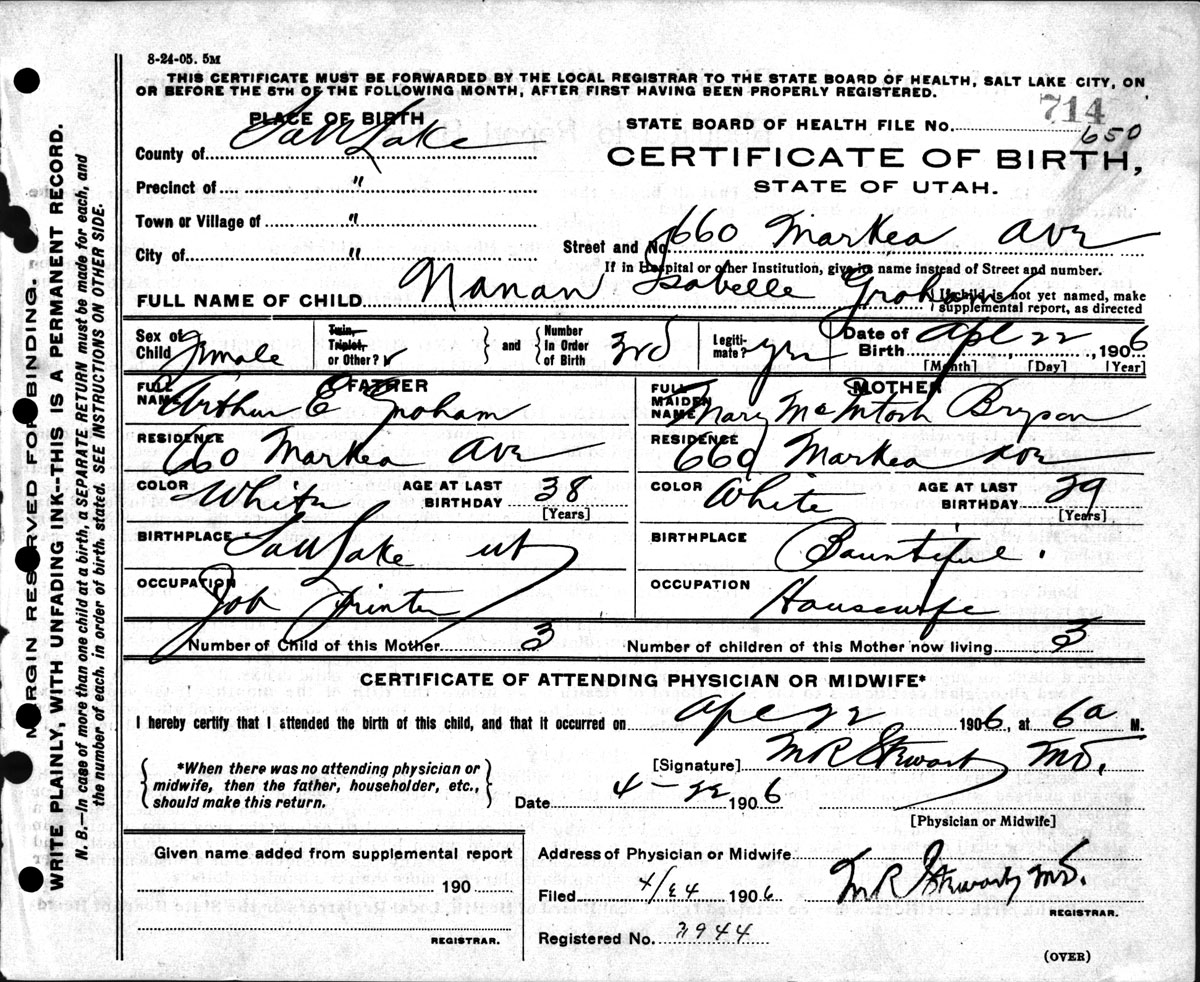 8-24-05. 5M
THIS CERTIFICATE MUST BE FORWARDED BY THE LOCAL REGISTRAR TO THE STATE BOARD OF HEALTH, SALT LAKE CITY, ON
OR BEFORE THE 5TH OF THE FOLLOWING MONTH, AFTER FIRST HAVING BEEN PROPERLY REGISTERED.
714
PLACE OF BIRTH
STATE BOARD OF HEALTH FILE NO. 650
County of Salt Lake
CERTIFICATE OF BIRTH,
STATE OF UTAH.
Precinct of "
Town or Village of "
City of "
Street and No. 660 Markea Ave
If in Hospital or other Institution, give its name instead of Street and number.
FULL NAME OF CHILD Nanan Isabelle Graham
If child is not yet named, make
supplemental report, as directed
Sex of Child Female
Twin, Triplet, or Other?
and
Number In Order of Birth 3rd
Legitimate? yes
Date of Birth Apl 22, 1906
[Month] [Day] [Year]
FATHER
FULL NAME Arthur E Graham
RESIDENCE 660 Markea Ave
COLOR White AGE AT LAST BIRTHDAY 38
[Years]
BIRTHPLACE Salt Lake Ut
OCCUPATION Job Printer
MOTHER
FULL MAIDEN NAME Mary McIntosh Bryson
RESIDENCE 660 Markea Ave
COLOR White AGE AT LAST BIRTHDAY 39
[Years]
BIRTHPLACE Bountiful.
OCCUPATION Housewife
Number of Child of this Mother 3
Number of children of this Mother now living 3
CERTIFICATE OF ATTENDING PHYSICIAN OR MIDWIFE*
I hereby certify that I attended the birth of this child, and that it occurred on Apl 22 1906, at 6a M.
*When there was no attending physician or
midwife, then the father, householder, etc.,
should make this return.
[Signature] M R Stewart MD.
Date 4-22 1906
[Physician or Midwife]
Given name added from supplemental report
190
REGISTRAR.
Address of Physician or Midwife
Filed 4/24 1906
M R Stewart MD.
REGISTRAR.
Registered No. 2944
(OVER)
MARGIN RESERVED FOR BINDING.
WRITE PLAINLY, WITH UNFADING INK--THIS IS A PERMANENT RECORD.
N. B.—In case of more than one child at a birth, a SEPARATE RETURN must be made for each, and
the number of each, in order of birth, stated. SEE INSTRUCTIONS ON OTHER SIDE.